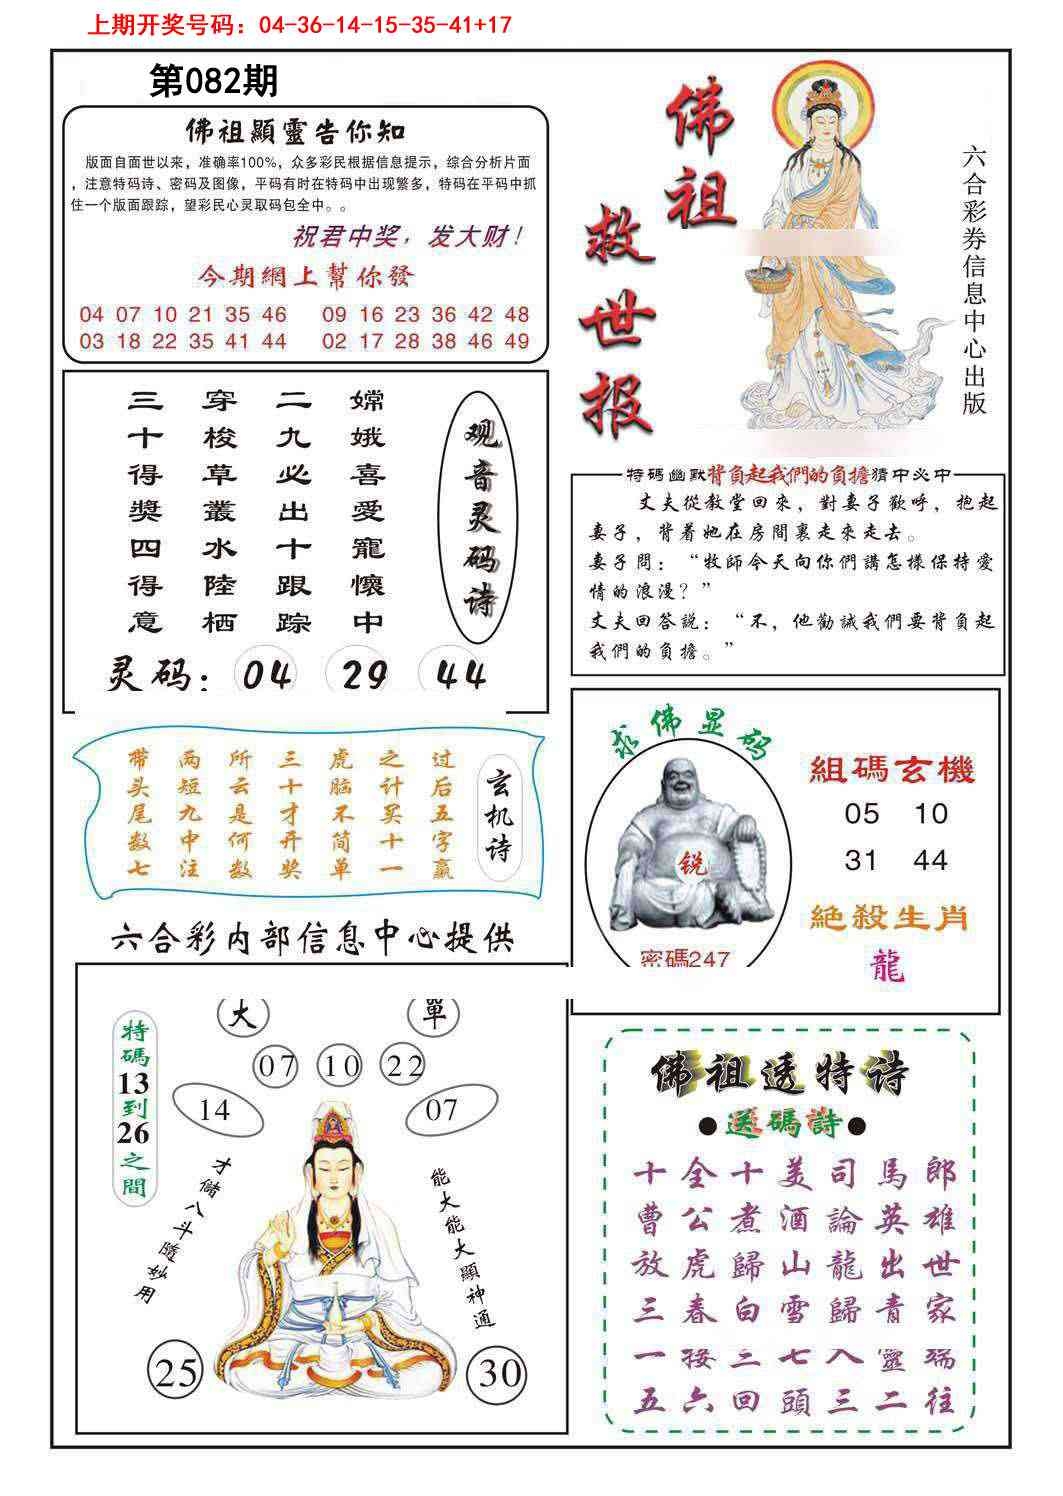 上期开奖号码：04-36-14-15-35-41+17
第082期
佛祖顯靈告你知
版面自面世以来，准确率100%，众多彩民根据信息提示，综合分析片面
，注意特码诗、密码及图像，平码有时在特码中出现繁多，特码在平码中抓
住一个版面跟踪，望彩民心灵取码包全中。。
祝君中奖，发大财！
今期網上幫你發
04 07 10 21 35 46 09 16 23 36 42 48
03 18 22 35 41 44 02 17 28 38 46 49
佛祖
救世报
六合彩券信息中心出版
观音灵码诗
嫦娥喜愛寵懷中
二九必出十跟踪
穿梭草叢水陸栖
三十得獎四得意
灵码：04 29 44
特碼幽默背負起我們的負擔猜中必中
丈夫從教堂回來，對妻子歡呼，抱起
妻子，背着她在房間裏走來走去。
妻子問：“牧師今天向你們講怎樣保持愛
情的浪漫？”
丈夫回答説：“不，他勸誡我們要背負起
我們的負擔。”
玄机诗
过后五字赢
之计买十一
虎脑不简单
三十才开奖
所云是何数
两短九中注
带头尾数七
求佛显码
锐
密碼247
組碼玄機
05 10
31 44
絶殺生肖
龍
六合彩内部信息中心提供
特碼13到26之間
大 單
07 10 22
14 07
才儲八斗隨妙用
能大能大顯神通
25 30
佛祖透特诗
●送碼詩●
十全十美司馬郎
曹公煮酒論英雄
放虎歸山龍出世
三春白雪歸青家
一接二七入靈端
五六回頭三二往